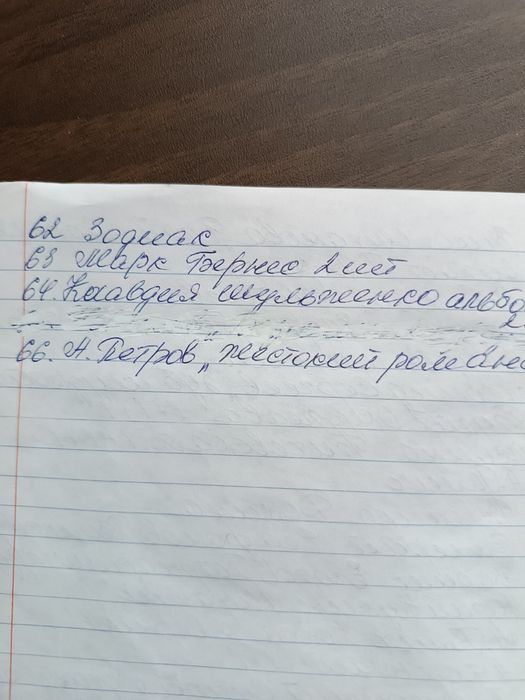 62 Зодиак
63 Марк Бернес 2 шт
64. Клавдия Шульженко альбо
2
66. А. Петров „Жестокий роман